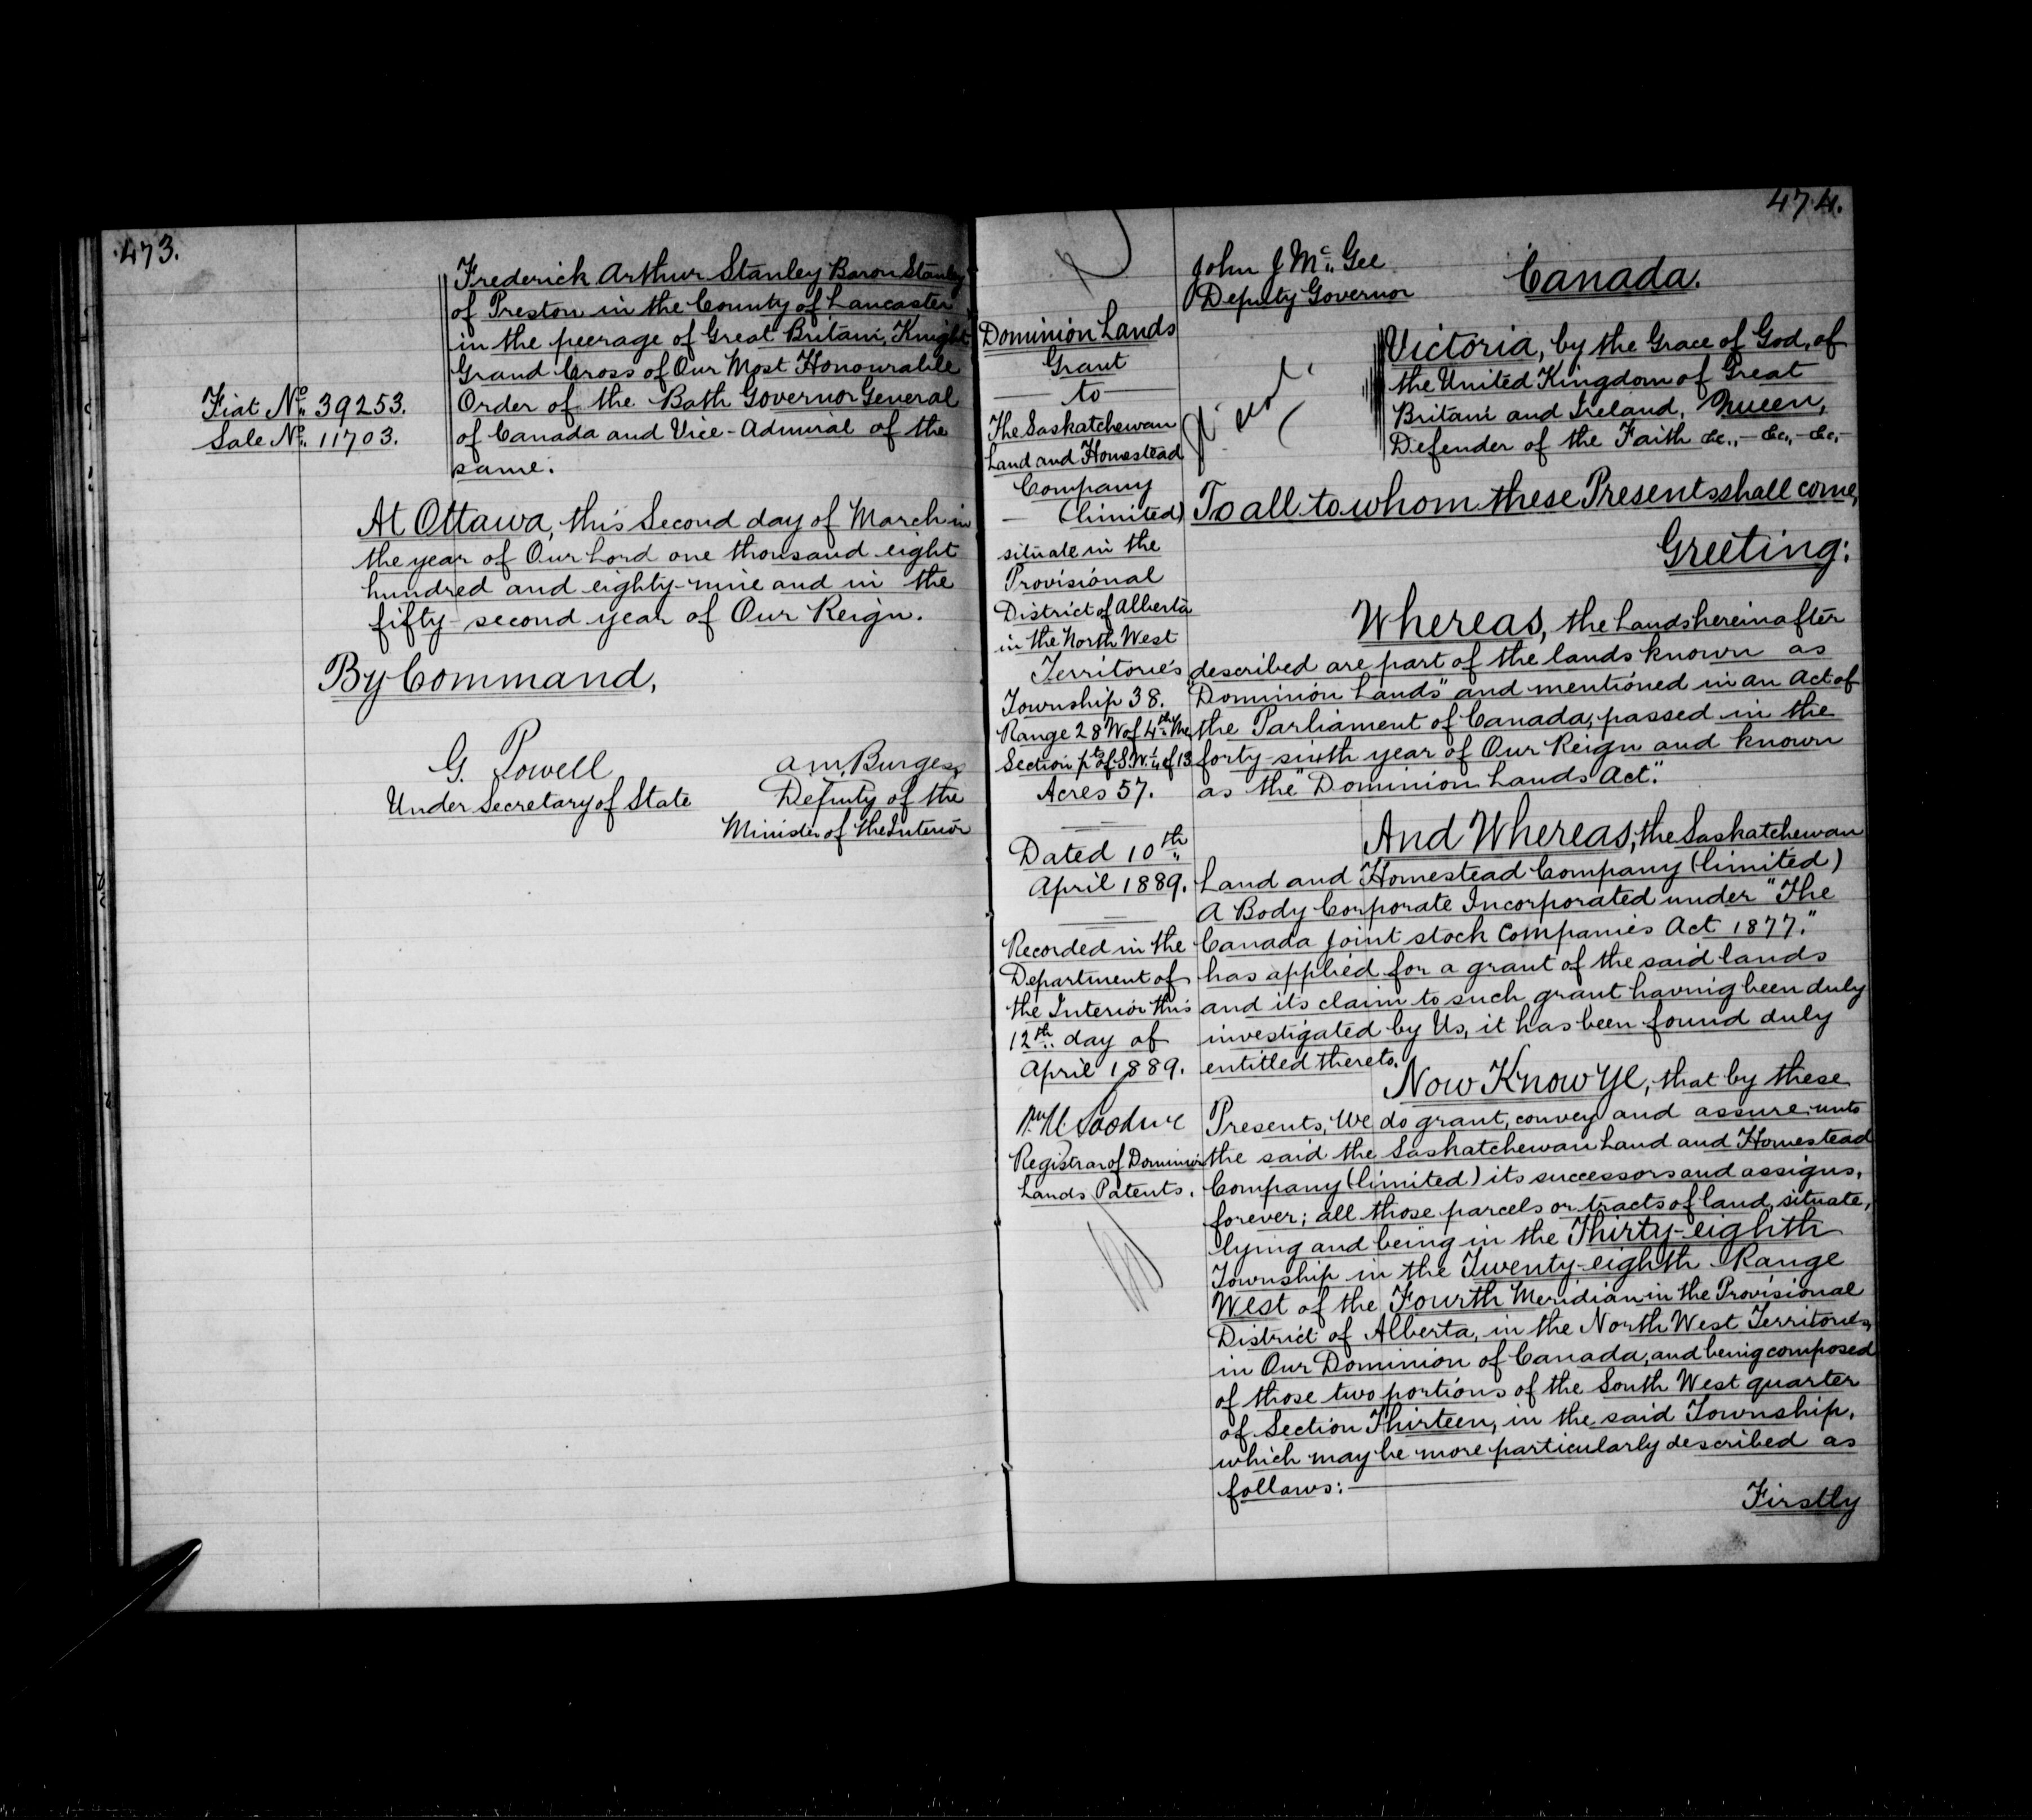 473.
Frederick Arthur Stanley Baron Stanley
of Preston in the County of Lancaster
in the peerage of Great Britain, Knight
Grand Cross of Our Most Honourable
Order of the Bath Governor General
of Canada and Vice-Admiral of the
same.
Fiat No. 39253.
Sale No. 11703.
At Ottawa, this Second day of March in
the year of Our Lord one thousand eight
hundred and eighty-nine and in the
fifty-second year of Our Reign.
By Command,
G. Powell
Under Secretary of State
A.M. Burgess
Deputy of the
Minister of the Interior
474.
Dominion Lands
Grant
to
The Saskatchewan
Land and Homestead
Company
(Limited)
situate in the
Provisional
District of Alberta
in the North West
Territories
Township 38.
Range 28 W of 4th Me
Section pt of S.W. 1/4 of 13
Acres 57.
Dated 10th
April 1889.
Recorded in the
Department of
the Interior this
12th day of
April 1889.
Registrar of Dominion
Lands Patents.
John J Mc Gee
Deputy Governor
Canada.
Victoria, by the Grace of God, of
the United Kingdom of Great
Britain and Ireland, Queen,
Defender of the Faith &c.,- &c,- &c,-
To all to whom these Presents shall come,
Greeting:
Whereas, the Lands hereinafter
described are part of the lands known as
"Dominion Lands" and mentioned in an Act of
the Parliament of Canada, passed in the
forty-sixth year of Our Reign and known
as the "Dominion Lands Act."
And Whereas, the Saskatchewan
Land and Homestead Company (Limited)
A Body Corporate Incorporated under "The
Canada Joint Stock Companies Act 1877."
has applied for a grant of the said lands
and its claim to such grant having been duly
investigated by Us, it has been found duly
entitled thereto.
Now Know Ye, that by these
Presents, We do grant, convey and assure unto
the said the Saskatchewan Land and Homestead
Company (Limited) its successors and assigns,
forever; all those parcels or tracts of land, situate,
lying and being in the Thirty-eighth
Township in the Twenty-eighth Range
West of the Fourth Meridian in the Provisional
District of Alberta, in the North West Territories,
in Our Dominion of Canada, and being composed
of those two portions of the South West quarter
of Section Thirteen, in the said Township,
which may be more particularly described as
follows:
Firstly